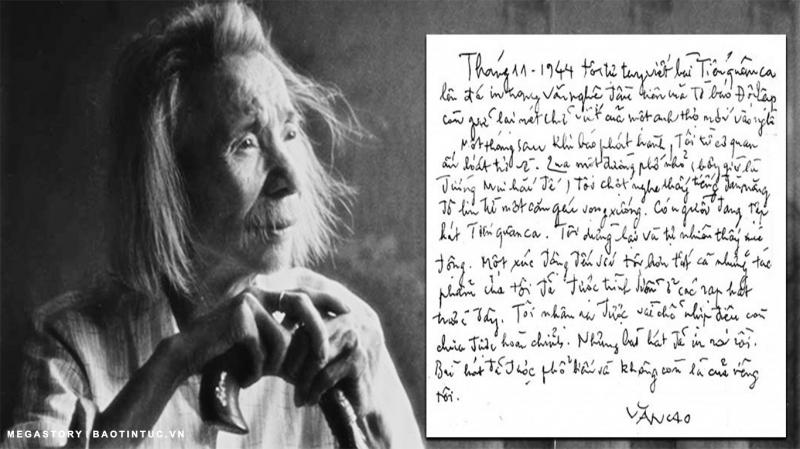 Tháng 11 - 1944 tôi tự tay viết bài Tiến quân ca
lên đá in trong văn nghệ đầu tiên mà Tờ báo Độc lập
còn giữ lại nét chữ viết của một anh thợ mới vào nghề
Một tháng sau khi báo phát hành, Tôi từ cơ quan
ấn loát trở về. Qua một đường phố nhỏ (bây giờ là
đường Mai hắc Đế) Tôi chợt nghe thấy tiếng đàn măng
đô lin từ một căn gác vọng xuống. Có người đang tập
hát Tiến quân ca. Tôi dừng lại và tự nhiên thấy xúc
động. Một xúc động đến với tôi hơn tất cả những tác
phẩm của tôi đã được trình diễn ở các rạp hát
trước đây. Tôi nhận ra được vài chỗ nhịp điệu còn
chưa được hoàn chỉnh. Nhưng bài hát đã in ra rồi.
Bài hát đã được phổ biến và không còn là của riêng
tôi.
VĂN CAO
MEGASTORY | BAOTINTUC.VN